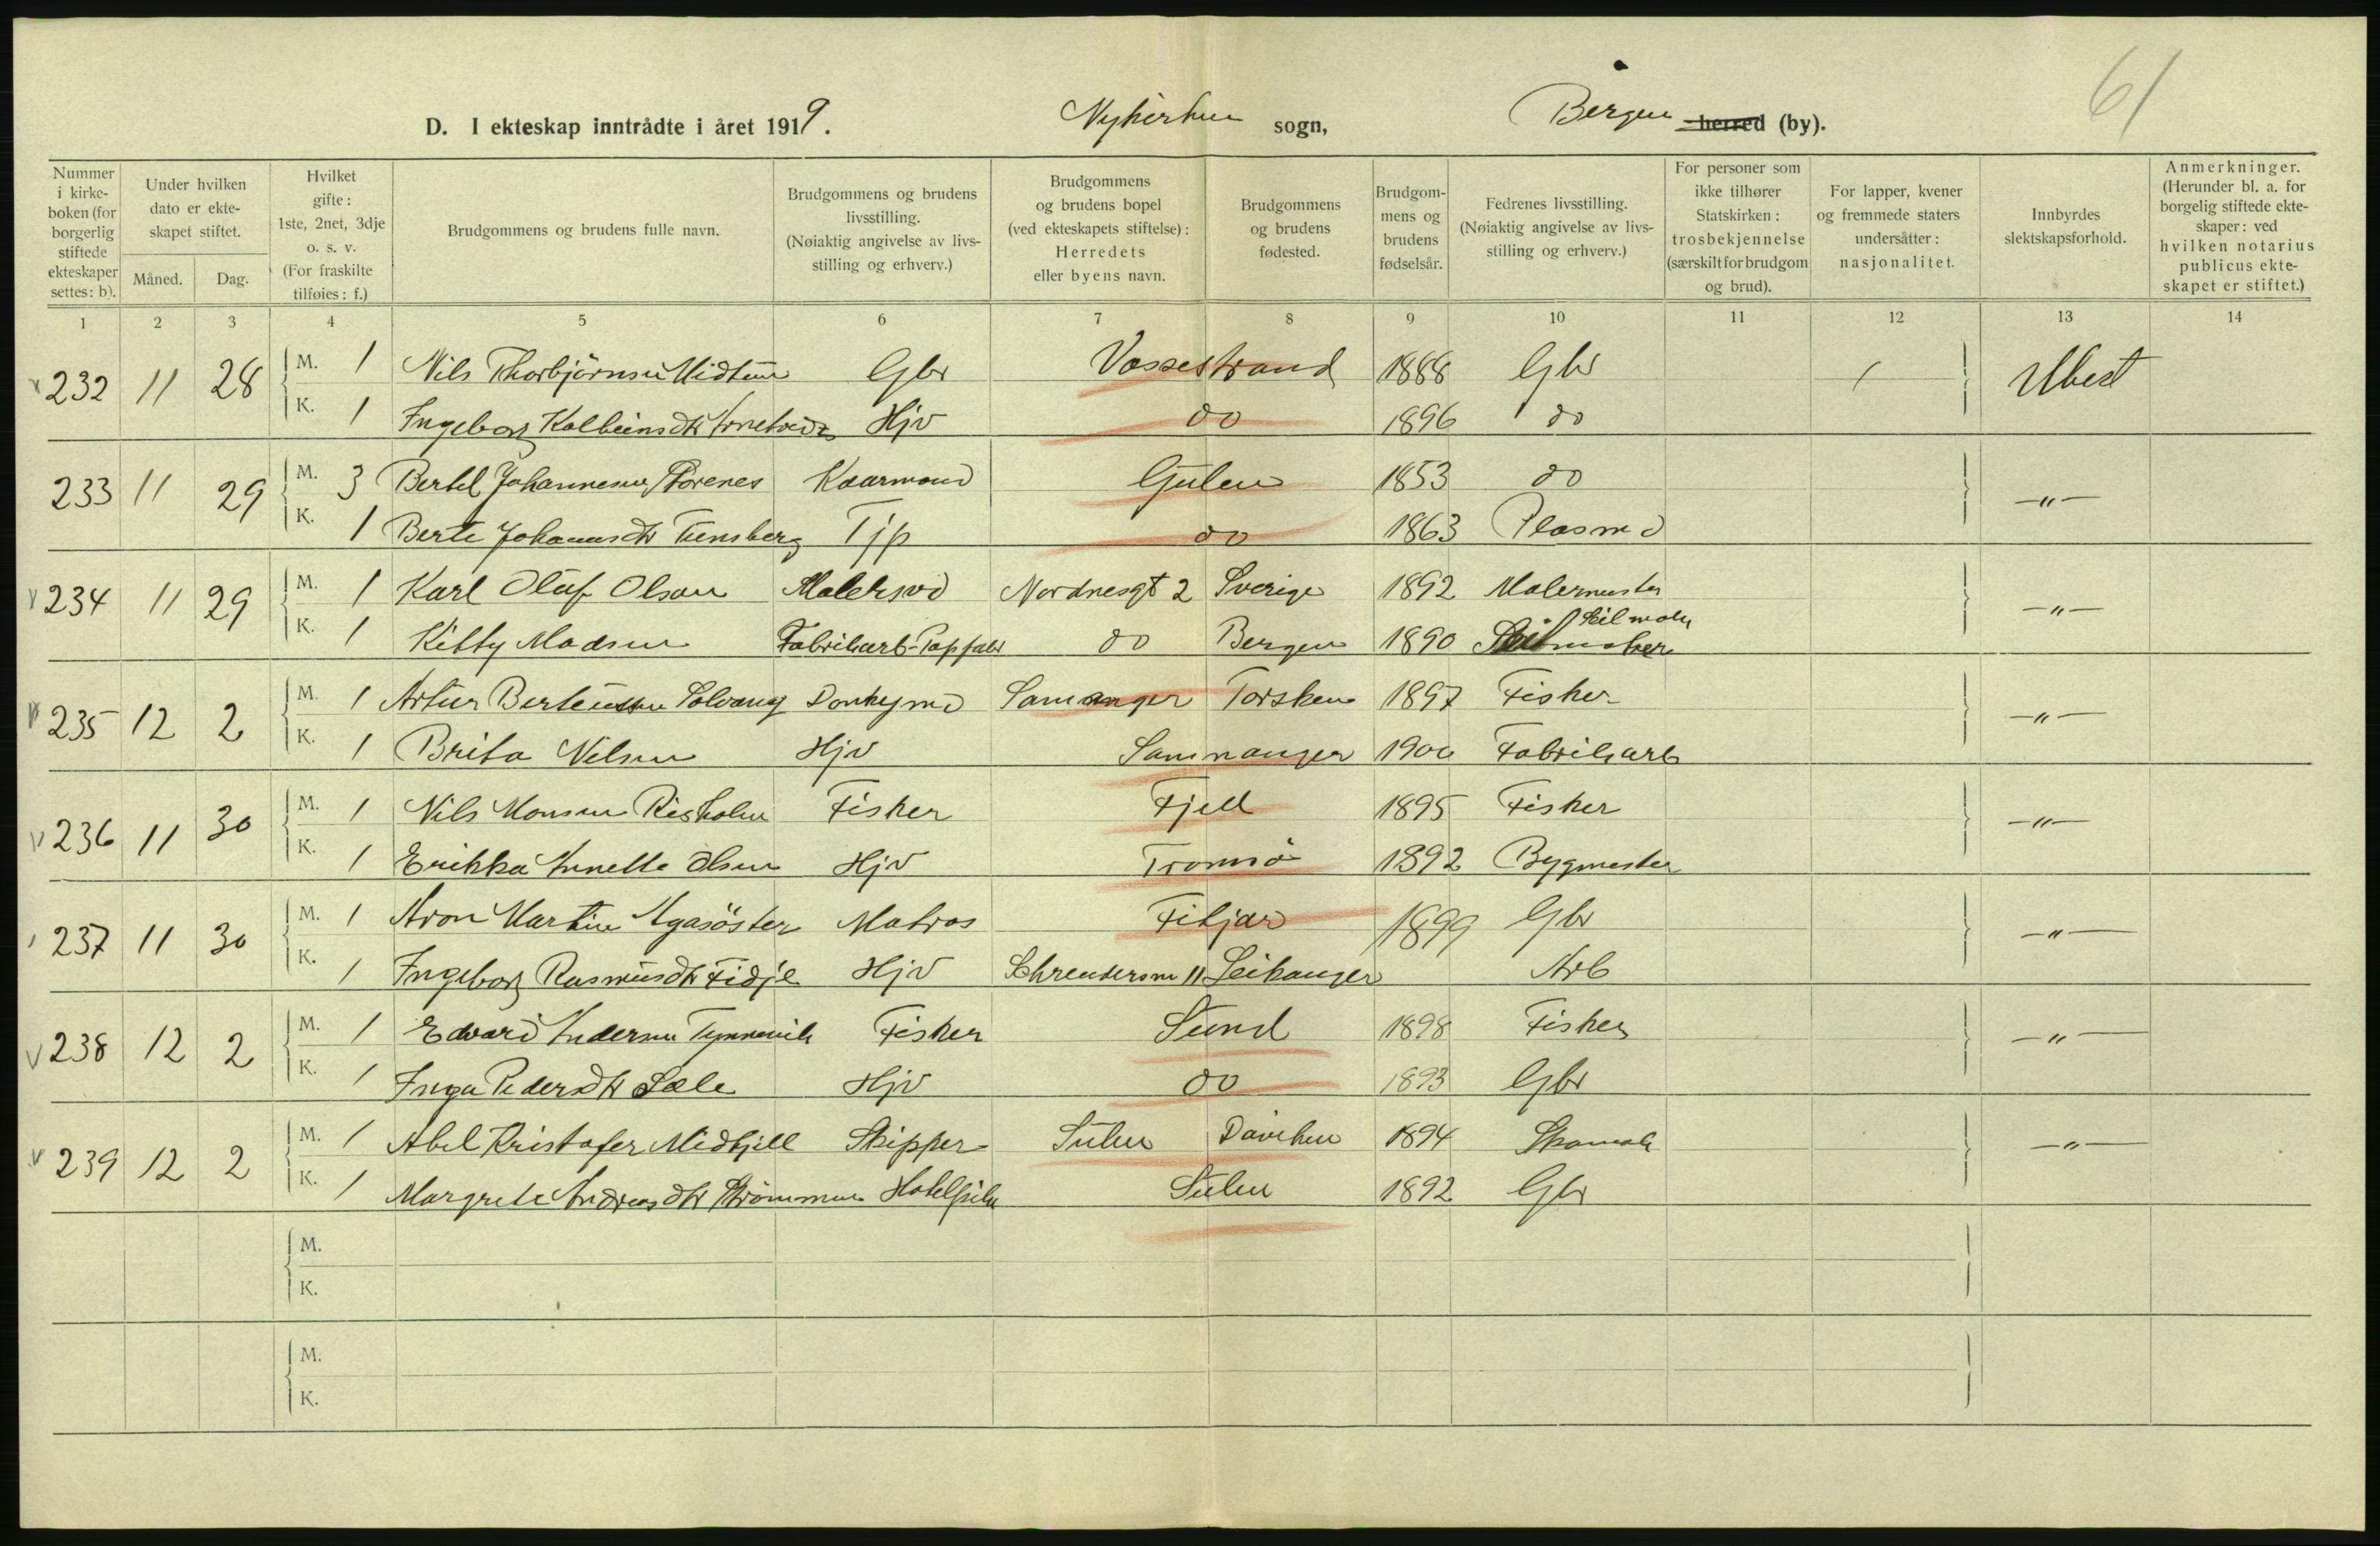 61
D. I ekteskap inntrådte i året 1919. Nykirken sogn, Bergen herred (by).
Nummer i kirkeboken (for borgerlig stiftede ekteskaper settes: b).
Under hvilken dato er ekteskapet stiftet.
Måned. Dag.
Hvilket gifte: 1ste, 2net, 3dje o. s. v. (For fraskilte tilføies: f.)
Brudgommens og brudens fulle navn.
Brudgommens og brudens livsstilling. (Nøiaktig angivelse av livsstilling og erhverv.)
Brudgommens og brudens bopel (ved ekteskapets stiftelse): Herredets eller byens navn.
Brudgommens og brudens fødested.
Brudgommens og brudens fødselsår.
Fedrenes livsstilling. (Nøiaktig angivelse av livsstilling og erhverv.)
For personer som ikke tilhører Statskirken: trosbekjennelse (særskilt for brudgom og brud).
For lapper, kvener og fremmede staters undersåtter: nasjonalitet.
Innbyrdes slektskapsforhold.
Anmerkninger. (Herunder bl. a. for borgelig stiftede ekteskaper: ved hvilken notarius publicus ekteskapet er stiftet.)
1 2 3 4 5 6 7 8 9 10 11 12 13 14
232 11 28 M. 1 Nils Thorbjörnsen Midtun Gbr Vossestrand 1888 Gbr / Ubesl
K. 1 Ingeborg Kolbeinsdtr Hjv do 1896 do
233 11 29 M. 3 Bertel Johannesen Kaarmand Gulen 1853 do —"—
K. 1 Berte Johannsdtr Tunsberg Tjp do 1863 Plasmd
234 11 29 M. 1 Karl Oluf Olsen Malersvd Nordnesgt 2 Sverige 1892 Malermester —"—
K. 1 Kitty Madsen Fabrikarb-Papfabr do Bergen 1890 Seilmaker
235 12 2 M. 1 Artur Berteussen Solvang Donkeymd Samnanger Torsken 1897 Fisker —"—
K. 1 Brita Nilsen Hjv Samnanger 1900 Fabrikarb
236 11 30 M. 1 Nils Monsen Risholm Fisker Fjell 1895 Fisker —"—
K. 1 Erikka Annette Olsen Hjv Tromsö 1892 Bygmester
237 11 30 M. 1 Aron Martin Agasöster Matros Fitjar 1899 Gbr —"—
K. 1 Ingeborg Rasmusdtr Fidje Hjv 11 Leikanger Arb
238 12 2 M. 1 Edvard Andersen Fisker Sund 1898 Fisker —"—
K. 1 Inga Pedersdtr Sæle Hjv do 1893 Gbr
239 12 2 M. 1 Abel Kristofer Midtfjell Skipper Sulen Daviken 1894 Skomak —"—
K. 1 Margrete Andreasdtr Strömmen Hotelpike Sulen 1892 Gbr
M.
K.
M.
K.